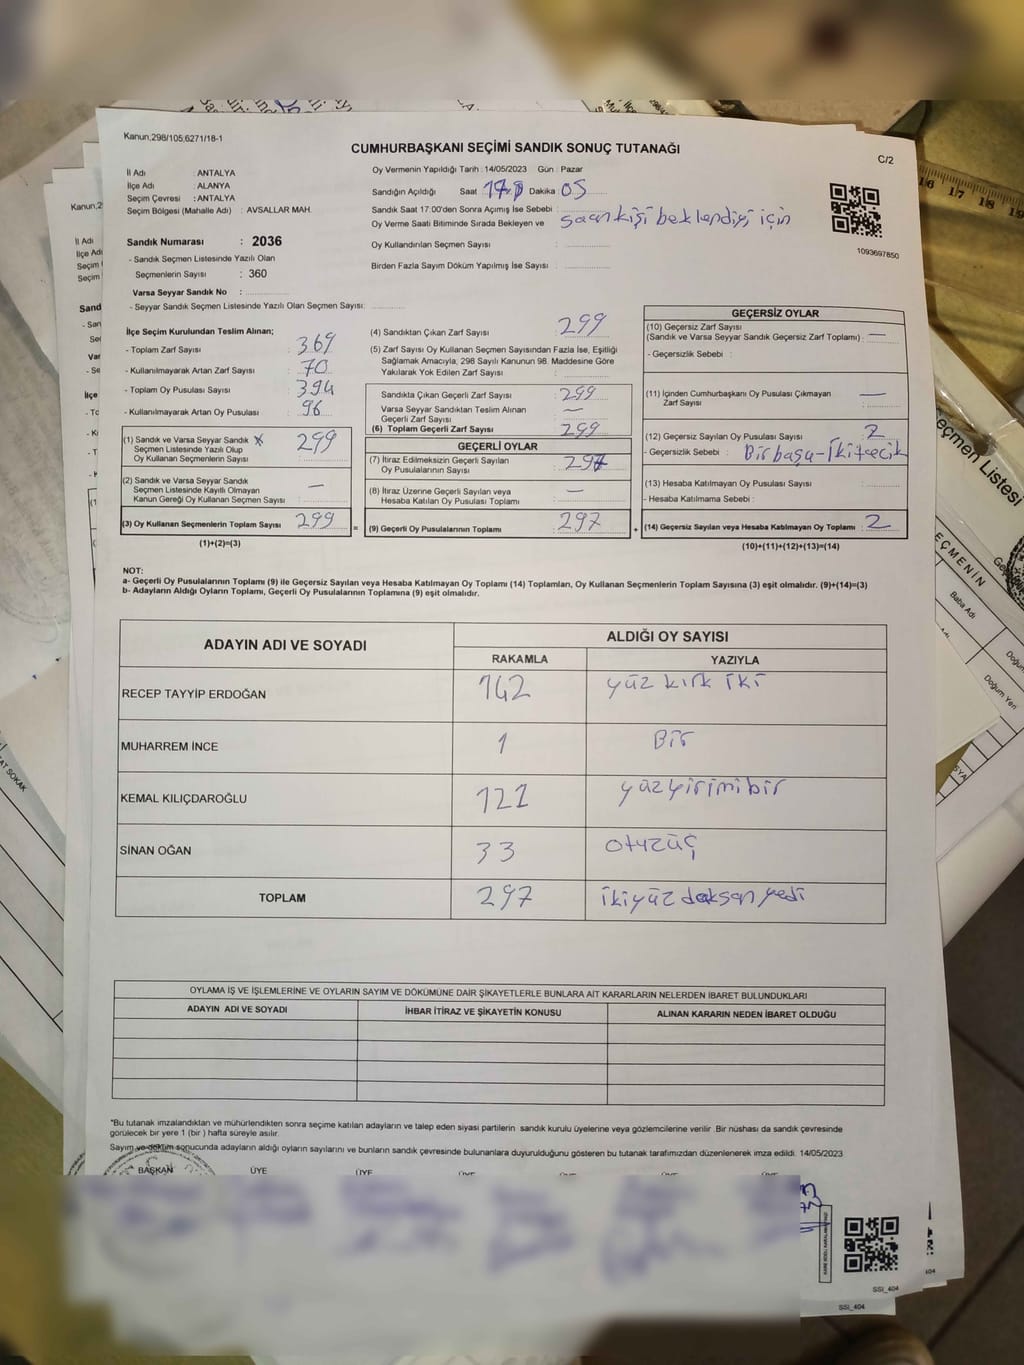 Kanun,298/105,6271/18-1
CUMHURBAŞKANI SEÇİMİ SANDIK SONUÇ TUTANAĞI
C/2
İl Adı : ANTALYA
İlçe Adı : ALANYA
Seçim Çevresi : ANTALYA
Seçim Bölgesi (Mahalle Adı) : AVSALLAR MAH.
Oy Vermenin Yapıldığı Tarih : 14/05/2023 Gün : Pazar
Sandığın Açıldığı Saat Dakika 05
Sandık Saat 17:00'den Sonra Açımış İse Sebebi :
Oy Verme Saati Bitiminde Sırada Bekleyen ve
kişi beklendiği için
Oy Kullandırılan Seçmen Sayısı :
Birden Fazla Sayım Döküm Yapılmış İse Sayısı :
1093697850
Sandık Numarası : 2036
- Sandık Seçmen Listesinde Yazılı Olan
Seçmenlerin Sayısı : 360
Varsa Seyyar Sandık No :
- Seyyar Sandık Seçmen Listesinde Yazılı Olan Seçmen Sayısı:
İlçe Seçim Kurulundan Teslim Alınan;
- Toplam Zarf Sayısı : 369
- Kullanılmayarak Artan Zarf Sayısı : 70
- Toplam Oy Pusulası Sayısı : 394
- Kullanılmayarak Artan Oy Pusulası : 96
(1) Sandık ve Varsa Seyyar Sandık
Seçmen Listesinde Yazılı Olup
Oy Kullanan Seçmenlerin Sayısı : 299
(2) Sandık ve Varsa Seyyar Sandık
Seçmen Listesinde Kayıtlı Olmayan
Kanun Gereği Oy Kullanan Seçmen Sayısı : —
(3) Oy Kullanan Seçmenlerin Toplam Sayısı : 299
(1)+(2)=(3)
(4) Sandıktan Çıkan Zarf Sayısı : 299
(5) Zarf Sayısı Oy Kullanan Seçmen Sayısından Fazla İse, Eşitliği
Sağlamak Amacıyla, 298 Sayılı Kanunun 98. Maddesine Göre
Yakılarak Yok Edilen Zarf Sayısı :
Sandıkta Çıkan Geçerli Zarf Sayısı : 299
Varsa Seyyar Sandıktan Teslim Alınan
Geçerli Zarf Sayısı : —
(6) Toplam Geçerli Zarf Sayısı : 299
GEÇERLİ OYLAR
(7) İtiraz Edilmeksizin Geçerli Sayılan
Oy Pusulalarının Sayısı : 297
(8) İtiraz Üzerine Geçerli Sayılan veya
Hesaba Katılan Oy Pusulası Toplamı : —
= (9) Geçerli Oy Pusulalarının Toplamı : 297 +
GEÇERSİZ OYLAR
(10) Geçersiz Zarf Sayısı
(Sandık ve Varsa Seyyar Sandık Geçersiz Zarf Toplamı) : —
- Geçersizlik Sebebi :
(11) İçinden Cumhurbaşkanı Oy Pusulası Çıkmayan
Zarf Sayısı : —
(12) Geçersiz Sayılan Oy Pusulası Sayısı : 2
- Geçersizlik Sebebi :
(13) Hesaba Katılmayan Oy Pusulası Sayısı :
- Hesaba Katılmama Sebebi :
(14) Geçersiz Sayılan veya Hesaba Katılmayan Oy Toplamı : 2
(10)+(11)+(12)+(13)=(14)
NOT:
a- Geçerli Oy Pusulalarının Toplamı (9) ile Geçersiz Sayılan veya Hesaba Katılmayan Oy Toplamı (14) Toplamları, Oy Kullanan Seçmenlerin Toplam Sayısına (3) eşit olmalıdır. (9)+(14)=(3)
b- Adayların Aldığı Oyların Toplamı, Geçerli Oy Pusulalarının Toplamına (9) eşit olmalıdır.
ADAYIN ADI VE SOYADI ALDIĞI OY SAYISI
RAKAMLA YAZIYLA
RECEP TAYYİP ERDOĞAN 142 yüz kırk iki
MUHARREM İNCE 1 Bir
KEMAL KILIÇDAROĞLU 121 yüzyirmibir
SİNAN OĞAN 33 otuzüç
TOPLAM 297 ikiyüz doksan yedi
OYLAMA İŞ VE İŞLEMLERİNE VE OYLARIN SAYIM VE DÖKÜMÜNE DAİR ŞİKAYETLERLE BUNLARA AİT KARARLARIN NELERDEN İBARET BULUNDUKLARI
ADAYIN ADI VE SOYADI İHBAR İTİRAZ VE ŞİKAYETİN KONUSU ALINAN KARARIN NEDEN İBARET OLDUĞU
"Bu tutanak imzalandıktan ve mühürlendikten sonra seçime katılan adayların ve talep eden siyasi partilerin sandık kurulu üyelerine veya gözlemcilerine verilir. Bir nüshası da sandık çevresinde
görülecek bir yere 1 (bir) hafta süreyle asılır.
Sayım ve döküm sonucunda adayların aldığı oyların sayılarını ve bunların sandık çevresinde bulunanlara duyurulduğunu gösteren bu tutanak tarafımızdan düzenlenerek imza edildi. 14/05/2023
BAŞKAN ÜYE ÜYE
SSI_404
SSI_404